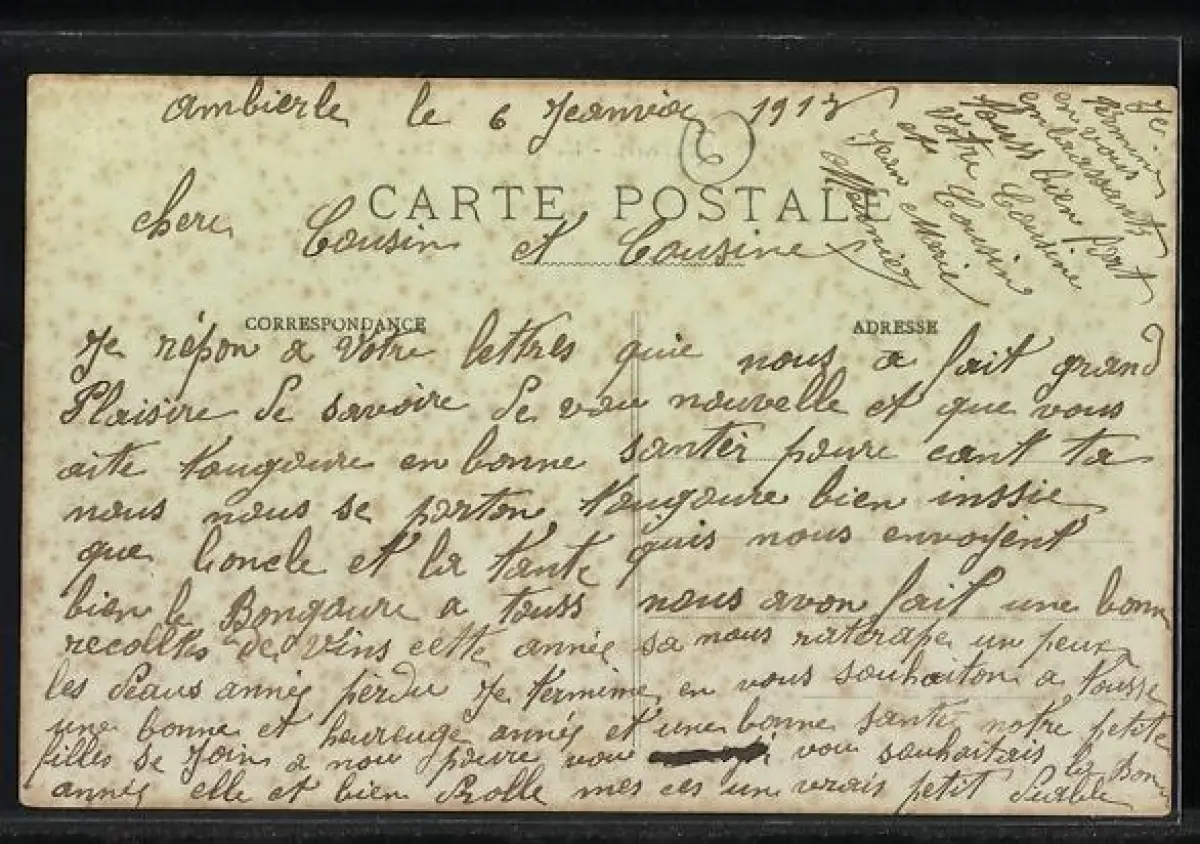 ambierle le 6 Jeanvier 1913
6
CARTE POSTALE
chere Cousin et Cousine
CORRESPONDANCE
ADRESSE
Je répon a votre lettres quie nous a fait grand
Plaisire de savoire de vou nouvelle et que vous
aite tougoure en bonne santér poure cant ta
nous nous se porton tougoure bien inssie
que loncle et la tante quis nous envoyent
bien le Bongoure a touss nous avon fait une bonne
recoltes de vins cette année sa nous raterape un peux
les deaus année perdu Je termine en vous souhaiton a tousse
une bonne et heureuge année et une bonne santé notre petite
filles se Join a nou poure vou vou souhaitais la Bonne
année elle et bien Drolle mes ces un vrais petit Diable
Je
termine
en vous
embrassants
touss bien fort
votre Cousine
et Cousin
Jean Marie